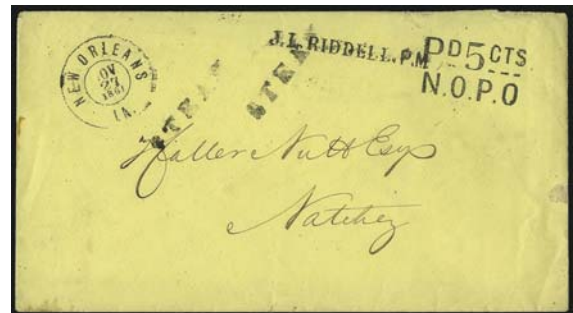 NEW ORLEANS
NOV
27
1861
LA.
STEAM
STEAM
J.L. RIDDELL. P.M
PD 5 CTS
N.O.P.O
Haller Nutt Esqr
Natchez